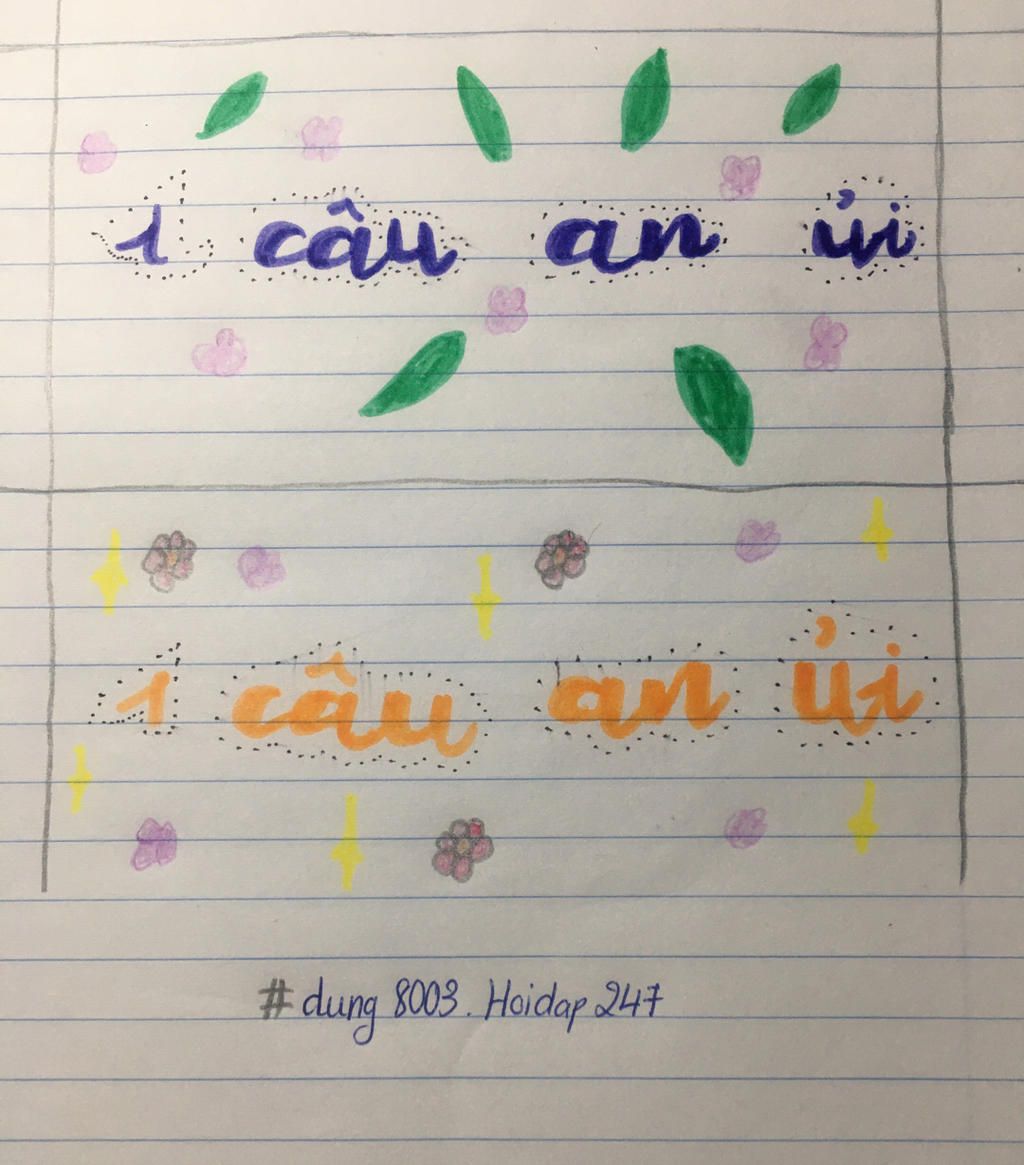 1 câu an ủi
1 câu an ủi
# dung 8003. Hoidap 247